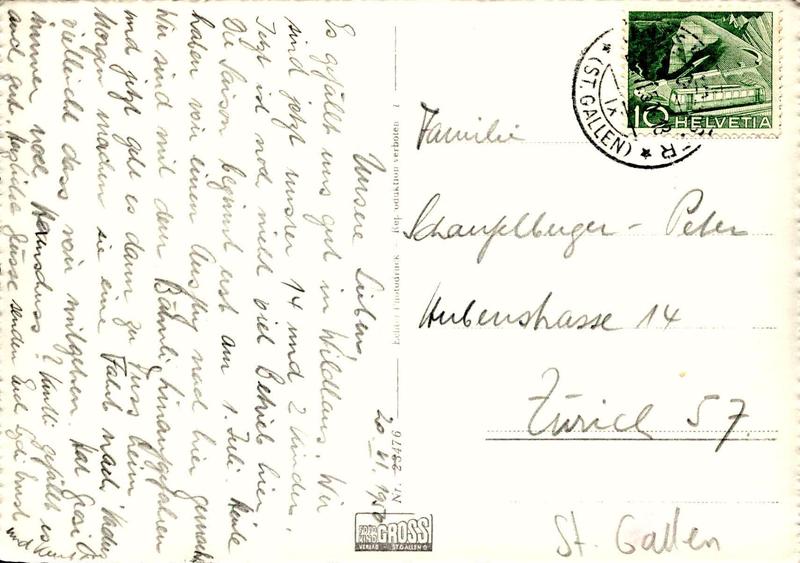 Unsere Lieben! 20. VI. 1950
Es gefällt uns gut in Wildhaus. Wir
sind jetzt unsrer 14 und 2 Kinder.
Jetzt ist noch nicht viel Betrieb hier.
Die Saison beginnt erst am 1. Juli. Heute
haben wir einen Ausflug nach hier gemacht
Wir sind mit dem Bähnli hinaufgefahren
und jetzt geht es dann zu Fuss heim
Morgen machen sie eine Fahrt nach Vaduz
vielleicht dass wir mitgehen. Hat
immer noch Hausschuss?
gefällt es
und gute Grüsse senden Euch
und
Nr. 28476
Photodruck - Reproduktion verboten
FOTO
GROSS
VERLAG - ST. GALLEN
(ST. GALLEN)
10 HELVETIA
Familie
Schaufelberger - Peter
Hubenstrasse 14
Zürich 57.
St. Gallen